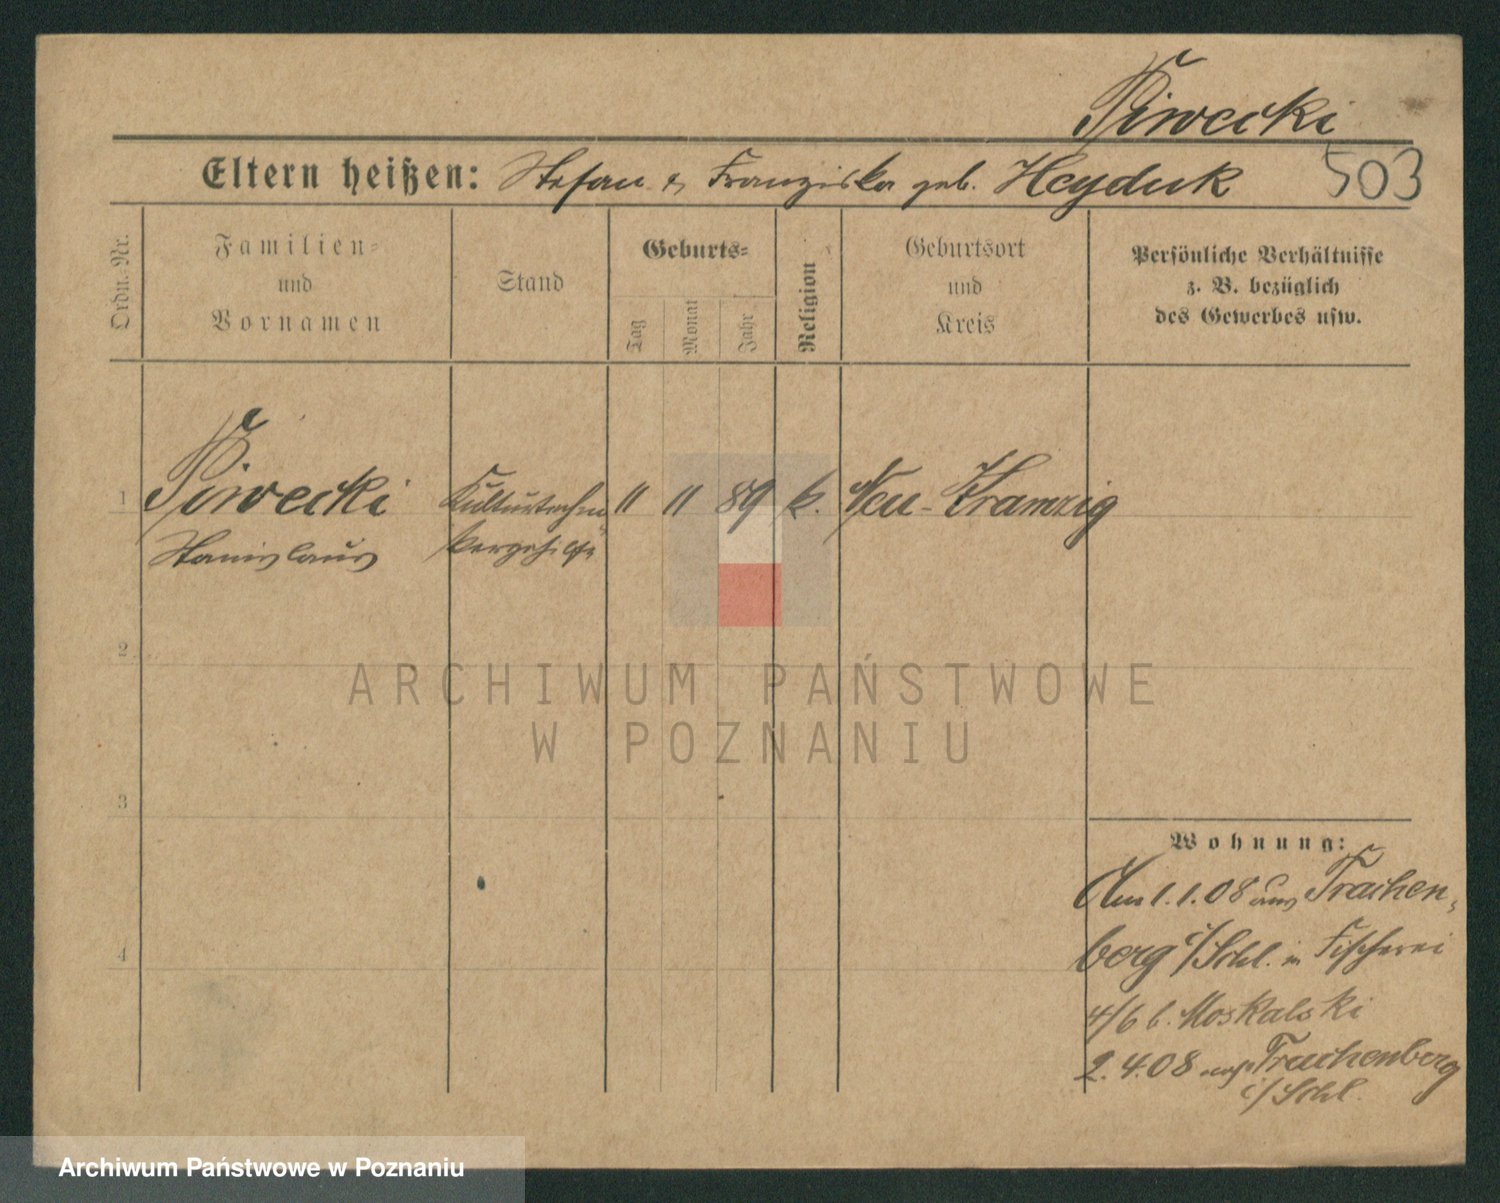 Piwecki
Eltern heißen: Stefan & Franziska geb. Heyduk 503
Ordn. Nr.
Familien-
und
Vornamen
Stand
Geburts-
Tag
Monat
Jahr
Religion
Geburtsort
und
Kreis
Persönliche Verhältnisse
z. B. bezüglich
des Gewerbes usw.
1 Piwecki Kulturtechni 11 11 89 k. Neu-Kramzig
Stanislaus kergehilfe
2
ARCHIWUM PAŃSTWOWE
W POZNANIU
3
Wohnung:
Am 1.1.08 aus Trachen-
berg i/Schl. in Fischerei
4
4/6 b. Moskalski
2.4.08 nach Trachenberg
i/Schl.
Archiwum Państwowe w Poznaniu